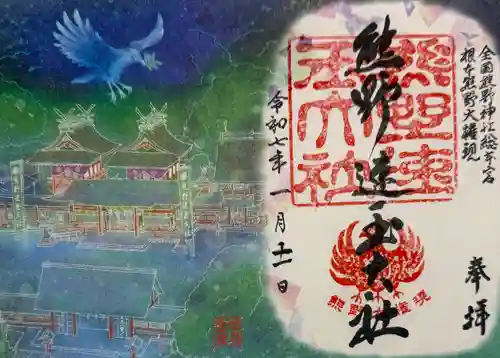 全国熊野神社総本宮
根本熊野大権現
奉拝
熊野速玉大社
令和七年一月十一日
熊野速玉大社
熊野権現